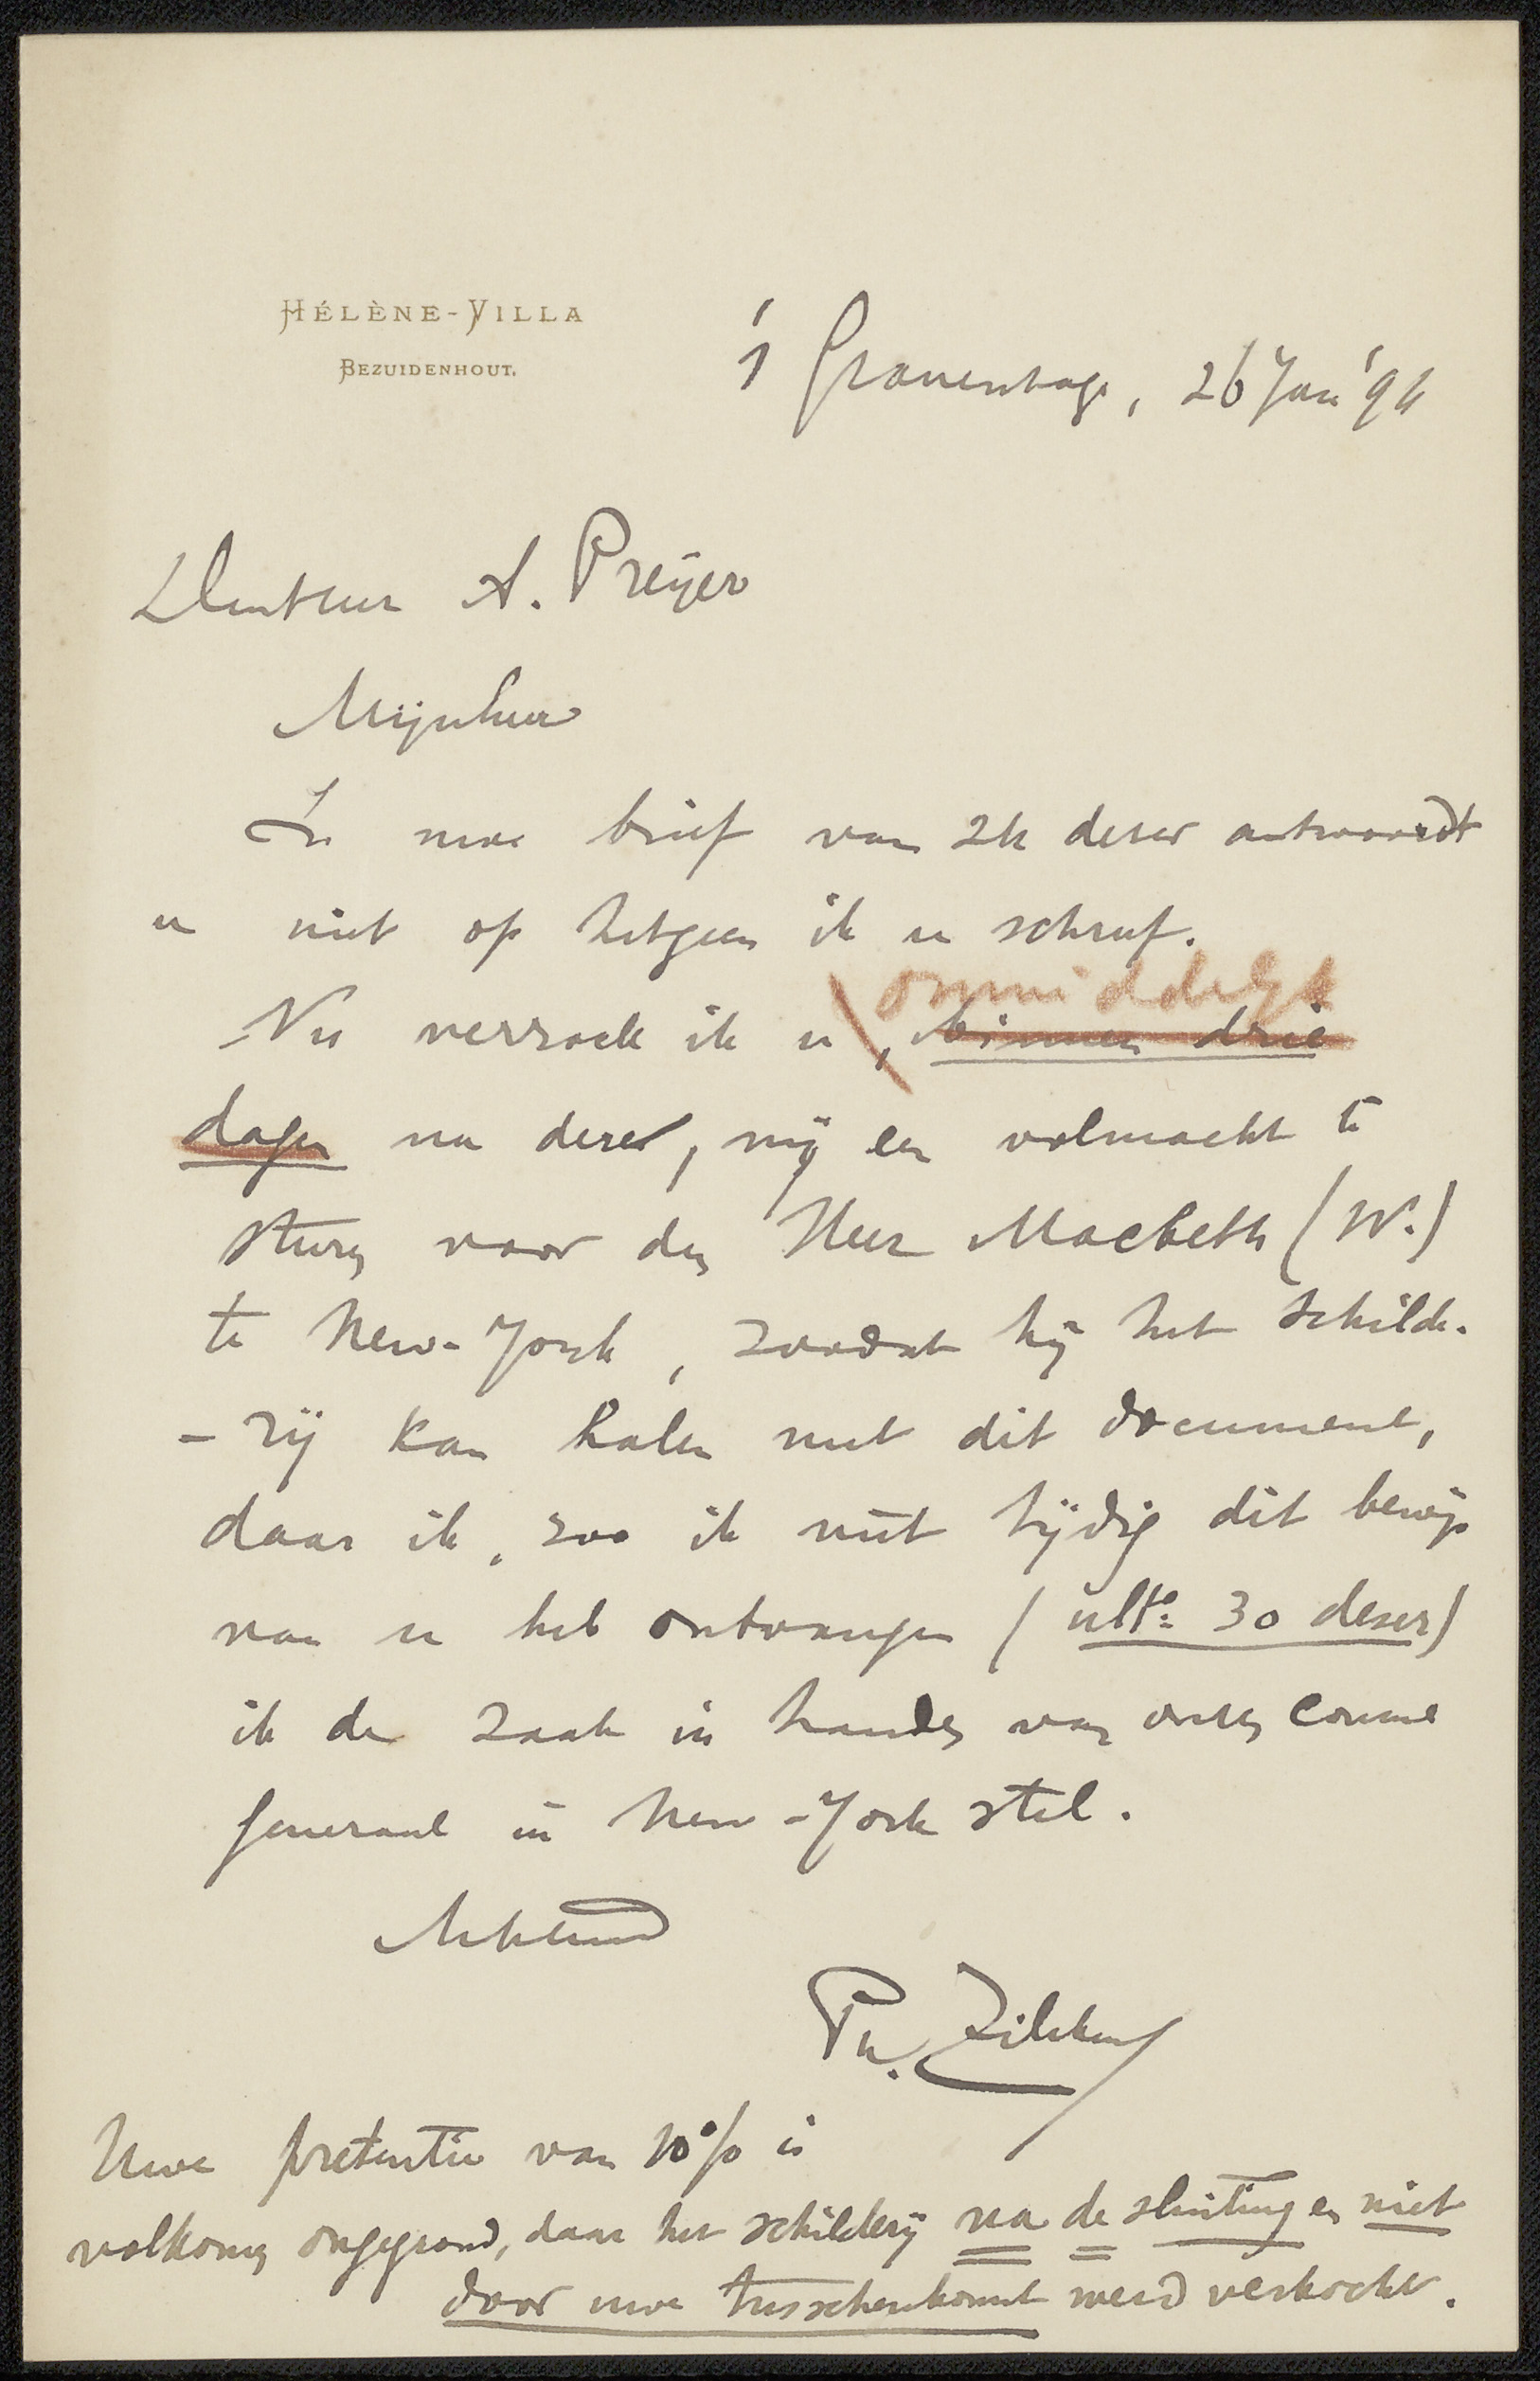 HÉLÈNE-VILLA
BEZUIDENHOUT.
's Gravenhage, 26 Jan '94
Den Heer A. Preijer
Mijnheer
In uwe brief van 24 dezer antwoordt
u niet op hetgeen ik u schreef.
onmiddelijk
Nu verzoek ik u, binnen drie
dagen na dezer, mij een volmacht te
sturen voor den Heer Macbeth (W.)
te New-York, zoodat hij het schilde-
-rij kan halen met dit document,
daar ik, zoo ik niet tijdig dit bewijs
van u heb ontvangen (ulto: 30 dezer)
ik de zaak in handen van onzen Consul
generaal in New-York stel.
Achtend
Ph. Zilcken
Uwe pretentie van 10% is
volkomen ongegrond, daar het schilderij na de sluiting en niet
door uwe tusschenkomst werd verkocht.